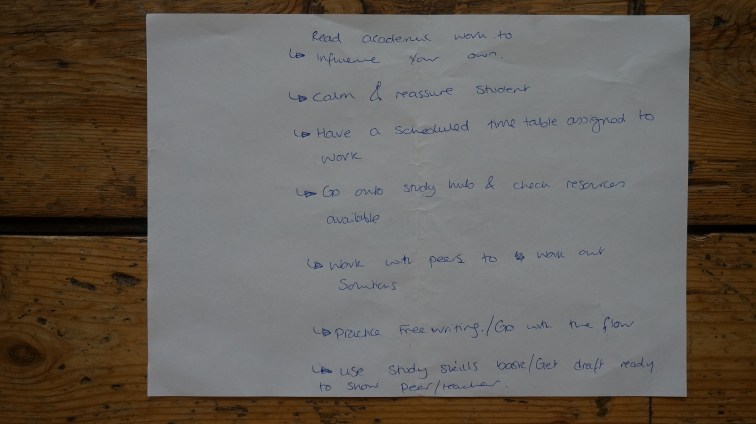 Read academic work to
↳ Influence your own.
↳ Calm & reassure student
↳ Have a scheduled time table assigned to
work
↳ Go onto study hub & check resources
available
↳ Work with peers to work out
Solutions
↳ Practice Free writing./Go with the flow
↳ use study skills book/Get draft ready
to show peer/teacher.